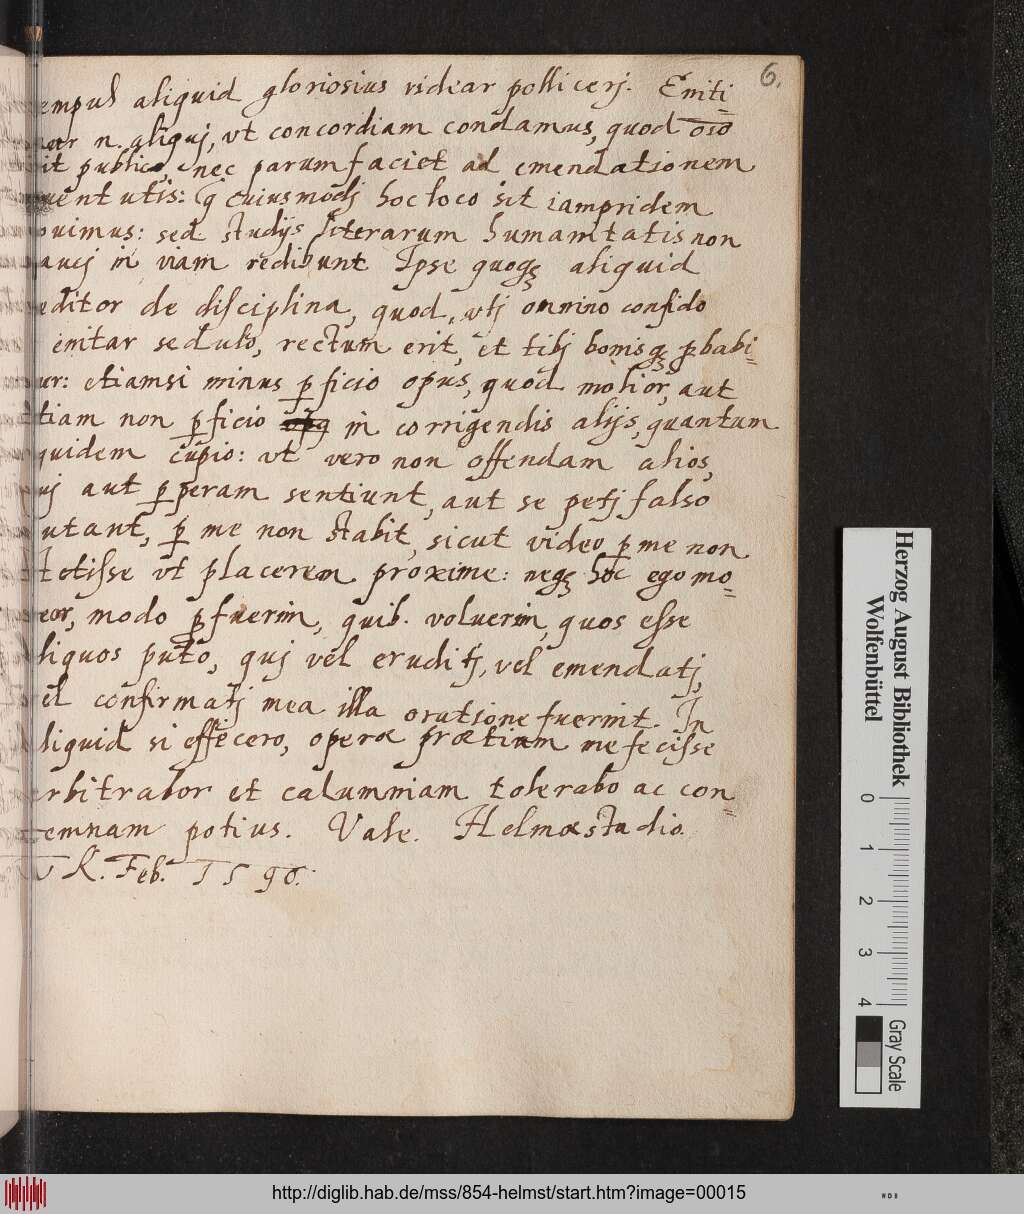 6.
empus aliquid gloriosius videar pollicerj. Eniti=
n. aliquj, vt concordiam condamus, quod oīo
it publice, nec parum faciet ad emendationem
uentutis: q̃ cuiusmodj hoc loco sit iampridem
ouimus: sed studijs literarum humanitatis non
aucj in viam redibunt Ipse quoqȝ aliquid
editor de disciplina, quod, vtj omnino confido
enitar sedulo, rectum erit, et tibj bonisqȝ ꝓbabi=
ur: etiamsi minus ꝑficio opus, quod molior, aut
tiam non ꝓficio in corrigendis alijs, quantum
quidem cupio: vt vero non offendam alios,
uj aut ꝑperam sentiunt, aut se petj falso
utant, ꝑ me non stabit, sicut video ꝑ me non
tetisse vt placerem proxime: neqȝ hoc ego mo=
eor, modo ꝓfuerim, quib. voluerim, quos esse
liquos puto, quj vel eruditj, vel emendatj,
el confirmatj mea illa oratione fuerint. In
liquid si effecero, operæ prætium me fecisse
rbitrabor et calumniam tolerabo ac con=
emnam potius. Vale. Helmæstadio
K. Feb. 1590.
Herzog August Bibliothek
Wolfenbüttel
0 1 2 3 4
Gray Scale
http://diglib.hab.de/mss/854-helmst/start.htm?image=00015